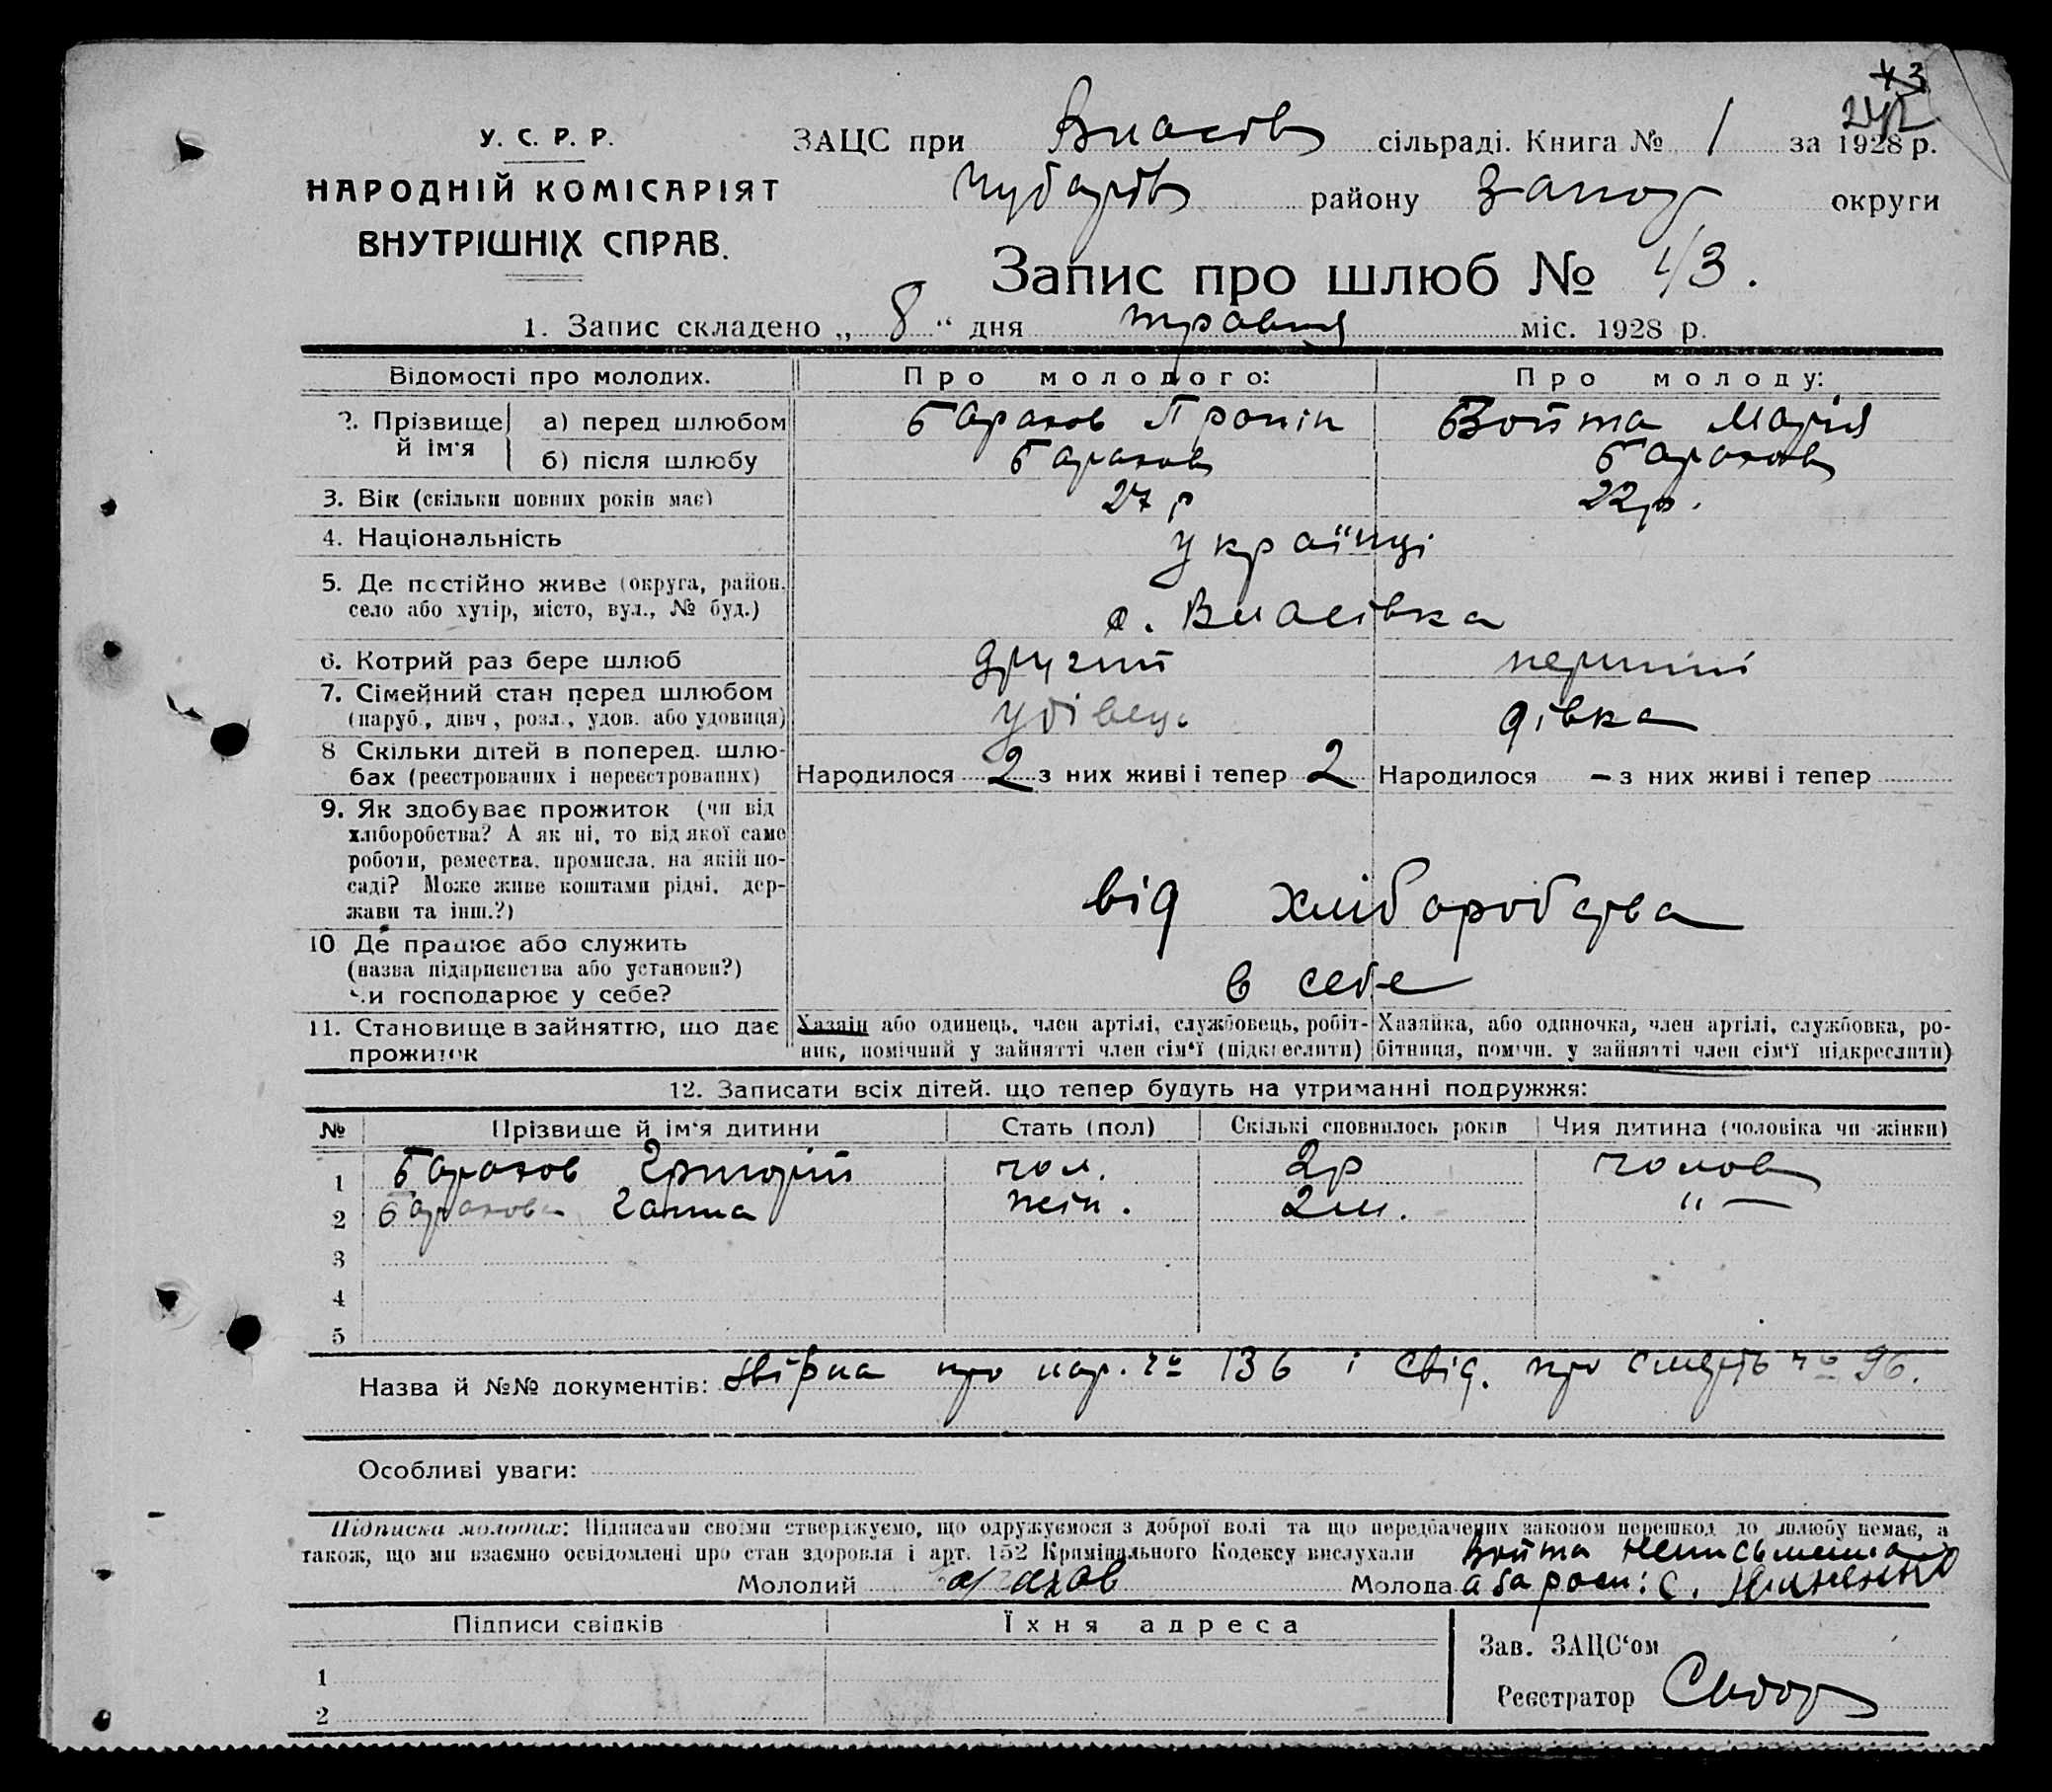 43
242
У. С. Р. Р.
НАРОДНІЙ КОМІСАРІЯТ
ВНУТРІШНІХ СПРАВ.
ЗАЦС при Власів сільраді. Книга № 1 за 1928 р.
Чубарів району Запор округи
Запис про шлюб № 43.
1. Запис складено „ 8 “ дня травня міс. 1928 р.
Відомості про молодих. Про молодого: Про молоду:
2. Прізвище й ім'я а) перед шлюбом Барахов Пронін Войта Марія
б) після шлюбу Барахов Барахов
3. Вік (скільки повних років має) 27 р 22 р.
4. Національність українці
5. Де постійно живе (округа, район,
село або хутір, місто, вул., № буд.) с. Власівка
6. Котрий раз бере шлюб другий перший
7. Сімейний стан перед шлюбом
(паруб., дівч., розл., удов. або удовиця) удівець дівка
8 Скільки дітей в поперед. шлю-
бах (реєстрованих і нереєстрованих) Народилося 2 з них живі і тепер 2 Народилося – з них живі і тепер
9. Як здобуває прожиток (чи від
хліборобства? А як ні, то від якої саме
роботи, ремества, промисла, на якій по-
саді? Може живе коштами рідні, дер-
жави та інш.?) від хліборобства
10 Де працює або служить
(назва підприємства або установи?)
чи господарює у себе? в себе
11. Становище в зайняттю, що дає
прожиток
Хазяїн або одинець, член артілі, службовець, робіт-
ник, помічний у зайнятті член сім'ї (підкреслити)
Хазяйка, або одиночка, член артілі, службовка, ро-
бітниця, помічн. у зайнятті член сім'ї підкреслити)
12. Записати всіх дітей, що тепер будуть на утриманні подружжя:
№ Прізвище й ім'я дитини Стать (пол) Скількі сповнилось років Чия дитина (чоловіка чи жінки)
1 Барахов Григорій чол. 2 р чолов
2 Барахова Ганна жін. 2 м. " —
3
4
5
Назва й №№ документів: про нар. № 136 і свід. про смерть № 96.
Особливі уваги:
Підписка молодих: Підписами своїми стверджуємо, що одружуємося з доброї волі та що передбачених законом перешкод до шлюбу немає, а
також, що ми взаємно освідомлені про стан здоров'я і арт. 152 Кримінального Кодексу вислухали Войта неписьменна
Молодий Барахов Молода
Підписи свідків Їхня адреса
1
2
Зав. ЗАЦС'ом
Реєстратор